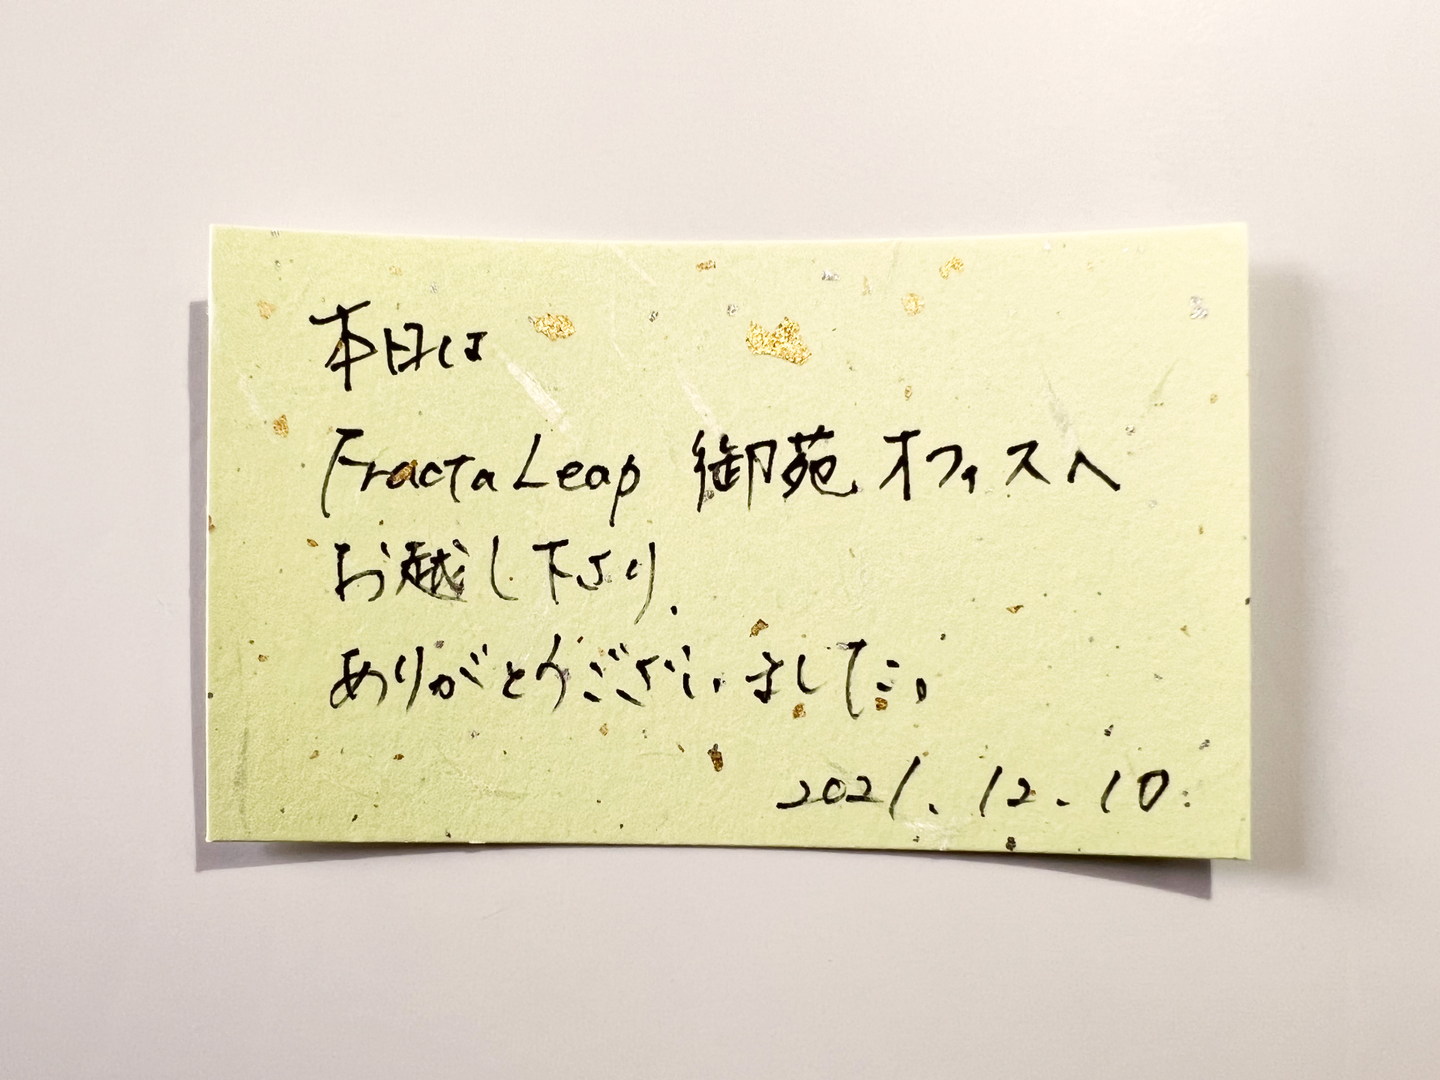 本日は
Fracta Leap 御苑オフィスへ
お越し下さり、
ありがとうございました。
2021.12.10.